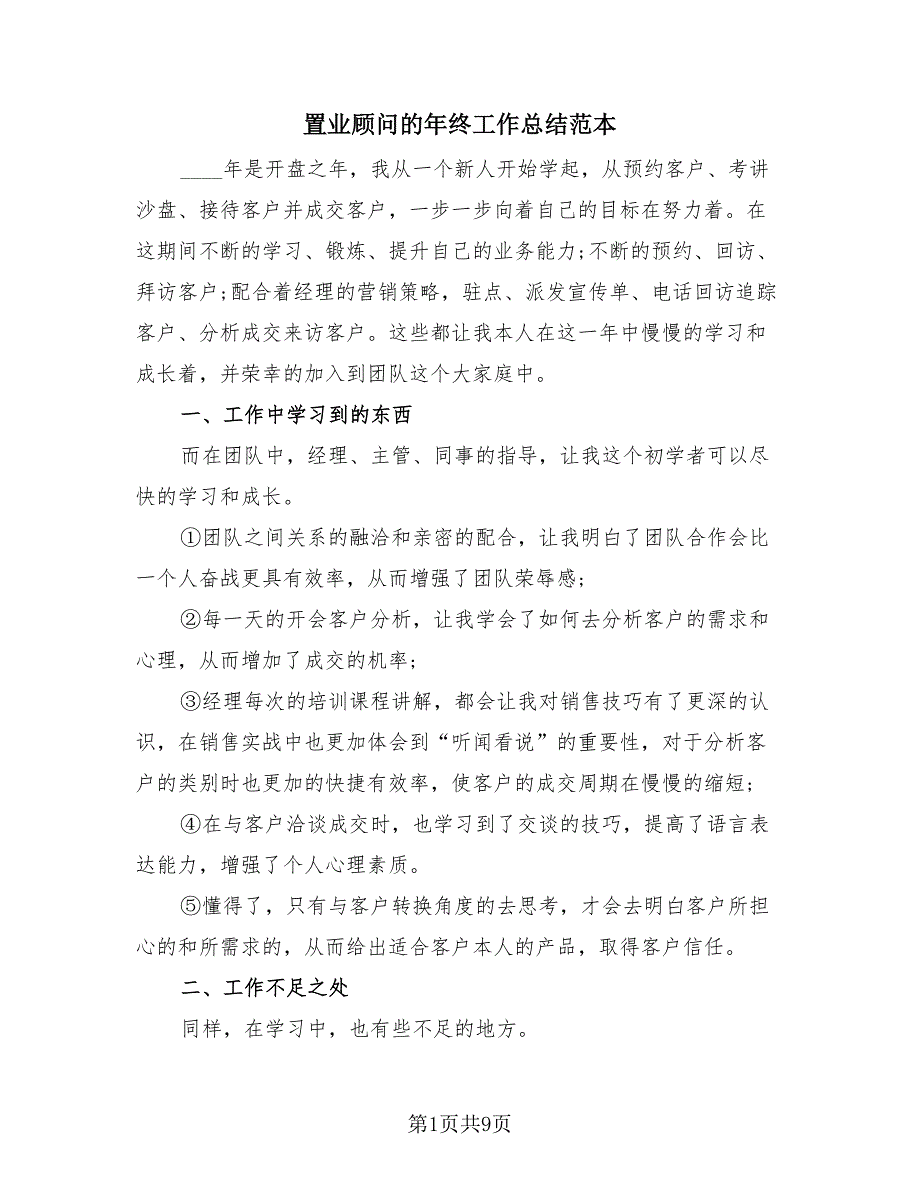 置业顾问的年终工作总结范本
____年是开盘之年，我从一个新人开始学起，从预约客户、考讲
沙盘、接待客户并成交客户，一步一步向着自己的目标在努力着。在
这期间不断的学习、锻炼、提升自己的业务能力;不断的预约、回访、
拜访客户;配合着经理的营销策略，驻点、派发宣传单、电话回访追踪
客户、分析成交来访客户。这些都让我本人在这一年中慢慢的学习和
成长着，并荣幸的加入到团队这个大家庭中。
一、工作中学习到的东西
而在团队中，经理、主管、同事的指导，让我这个初学者可以尽
快的学习和成长。
①团队之间关系的融洽和亲密的配合，让我明白了团队合作会比
一个人奋战更具有效率，从而增强了团队荣辱感;
②每一天的开会客户分析，让我学会了如何去分析客户的需求和
心理，从而增加了成交的机率;
③经理每次的培训课程讲解，都会让我对销售技巧有了更深的认
识，在销售实战中也更加体会到“听闻看说”的重要性，对于分析客
户的类别时也更加的快捷有效率，使客户的成交周期在慢慢的缩短;
④在与客户洽谈成交时，也学习到了交谈的技巧，提高了语言表
达能力，增强了个人心理素质。
⑤懂得了，只有与客户转换角度的去思考，才会去明白客户所担
心的和所需求的，从而给出适合客户本人的产品，取得客户信任。
二、工作不足之处
同样，在学习中，也有些不足的地方。
第1页共9页